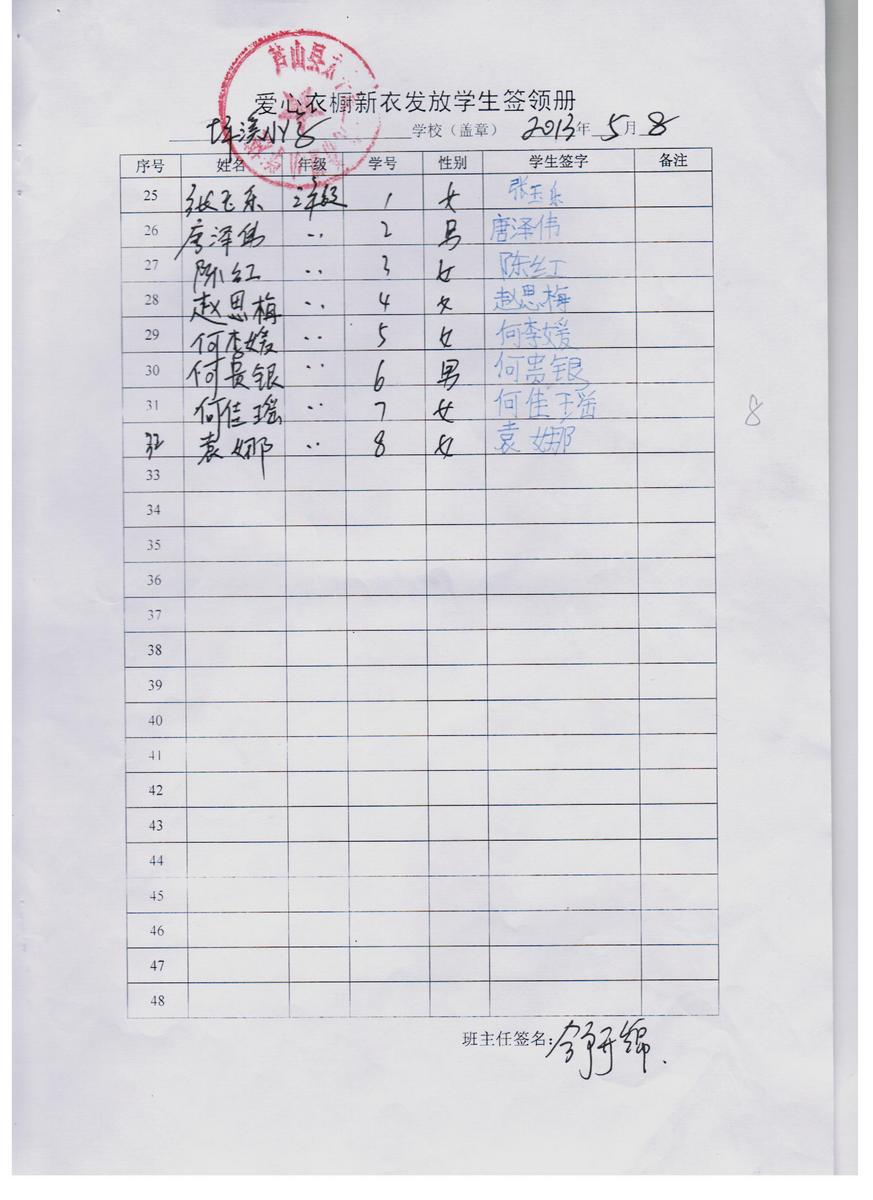 爱心衣橱新衣发放学生签领册
学校（盖章） 2013年 5月 8
序号 姓名 年级 学号 性别 学生签字 备注
25 张玉乐 2年级 1 女 张玉乐
26 唐泽伟 ·· 2 男 唐泽伟
27 陈红 ·· 3 女 陈红
28 赵思梅 ·· 4 女 赵思梅
29 何李媛 ·· 5 女 何李媛
30 何贵银 ·· 6 男 何贵银
31 何佳瑶 ·· 7 女 何佳瑶
32 袁娜 ·· 8 女 袁娜
8
33
34
35
36
37
38
39
40
41
42
43
44
45
46
47
48
班主任签名：